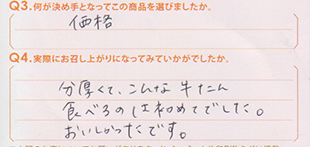 Q3.何が決め手となってこの商品を選びましたか。
価格
Q4.実際にお召し上がりになってみていかがでしたか。
分厚くて、こんな牛たん
食べるのは初めてでした。
おいしかったです。